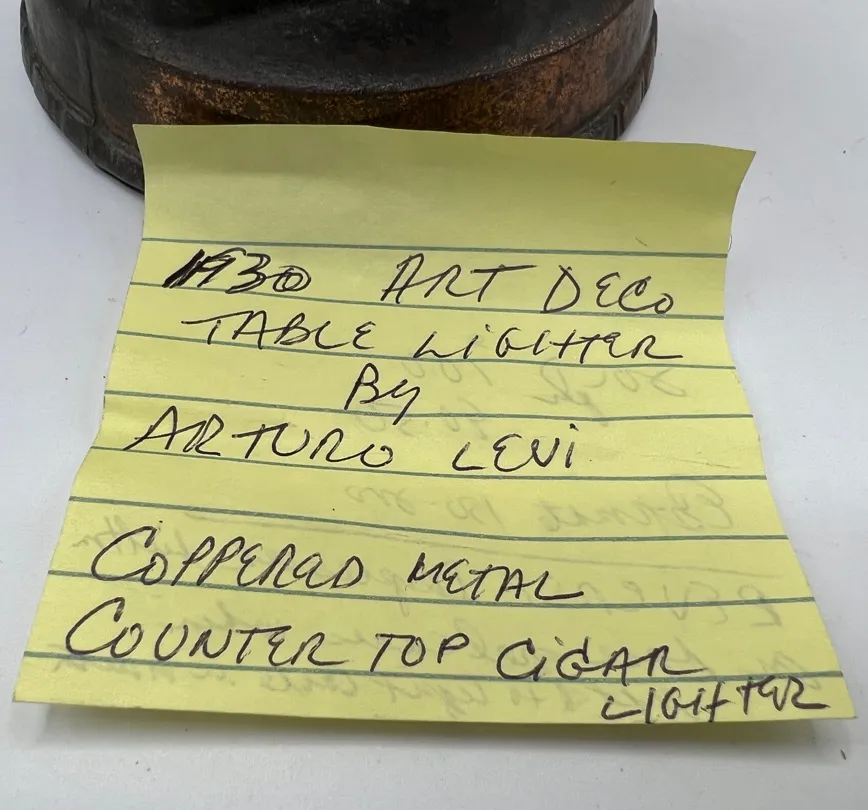 1930 ART DECO
TABLE LIGHTER
By
ARTURO LEVI
COPPERED METAL
COUNTER TOP CIGAR
LIGHTER